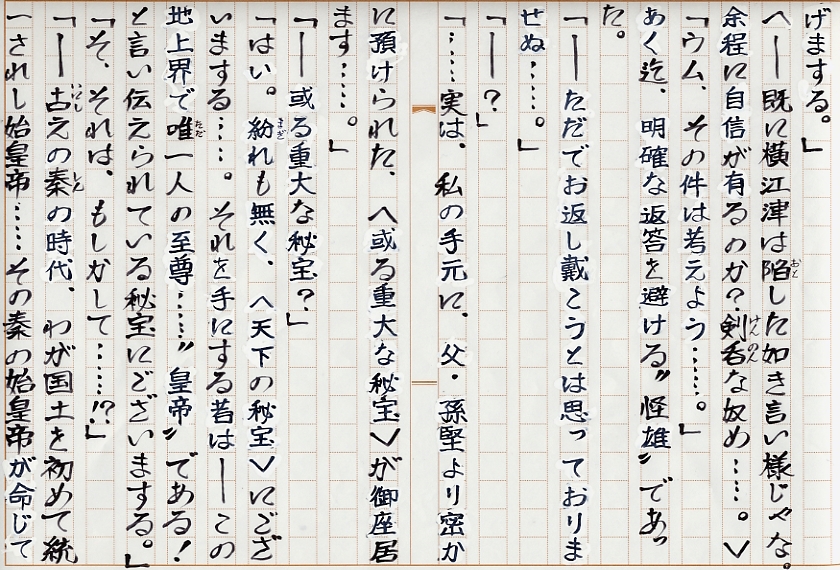 げまする。」
〈――既に横江津は陥した如き言い様じゃな。
余程に自信が有るのか？剣呑な奴め……。〉
「ウム、その件は考えよう……。」
あく迄、明確な返答を避ける〝怪雄〟であっ
た。
「――ただでお返し戴こうとは思っておりま
せぬ……。」
「――？」
「……実は、私の手元に、父・孫堅より密か
に預けられた、〈或る重大な秘宝〉が御座居
ます……。」
「――或る重大な秘宝？」
「はい。紛れも無く、〈天下の秘宝〉にござ
いまする……。それを手にする者は――この
地上界で唯一人の至尊……〝皇帝〟である！
と言い伝えられている秘宝にございまする。」
「そ、それは、もしかして……!?」
「――古えの秦の時代、わが国土を初めて統
一されし始皇帝……その秦の始皇帝が命じて